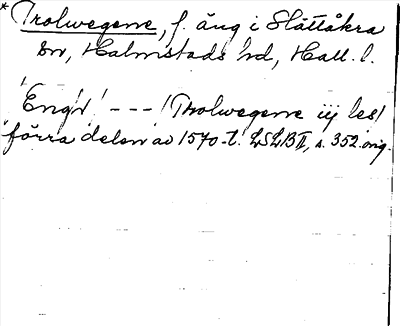 * Trolwegerne, f. äng i Slättåkra
sn, Halmstads hd, Hall. l.
'Eng'r!' --- / Trolwegerne iij les /
förra delen av 1570-t. LSLB II, s. 352. orig.